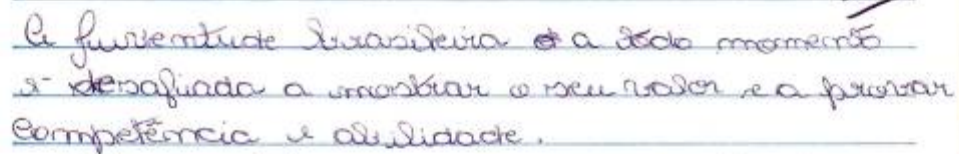 A juventude brasileira a todo momento
é desafiada a mostrar o seu valor e a provar
competência e abilidade.